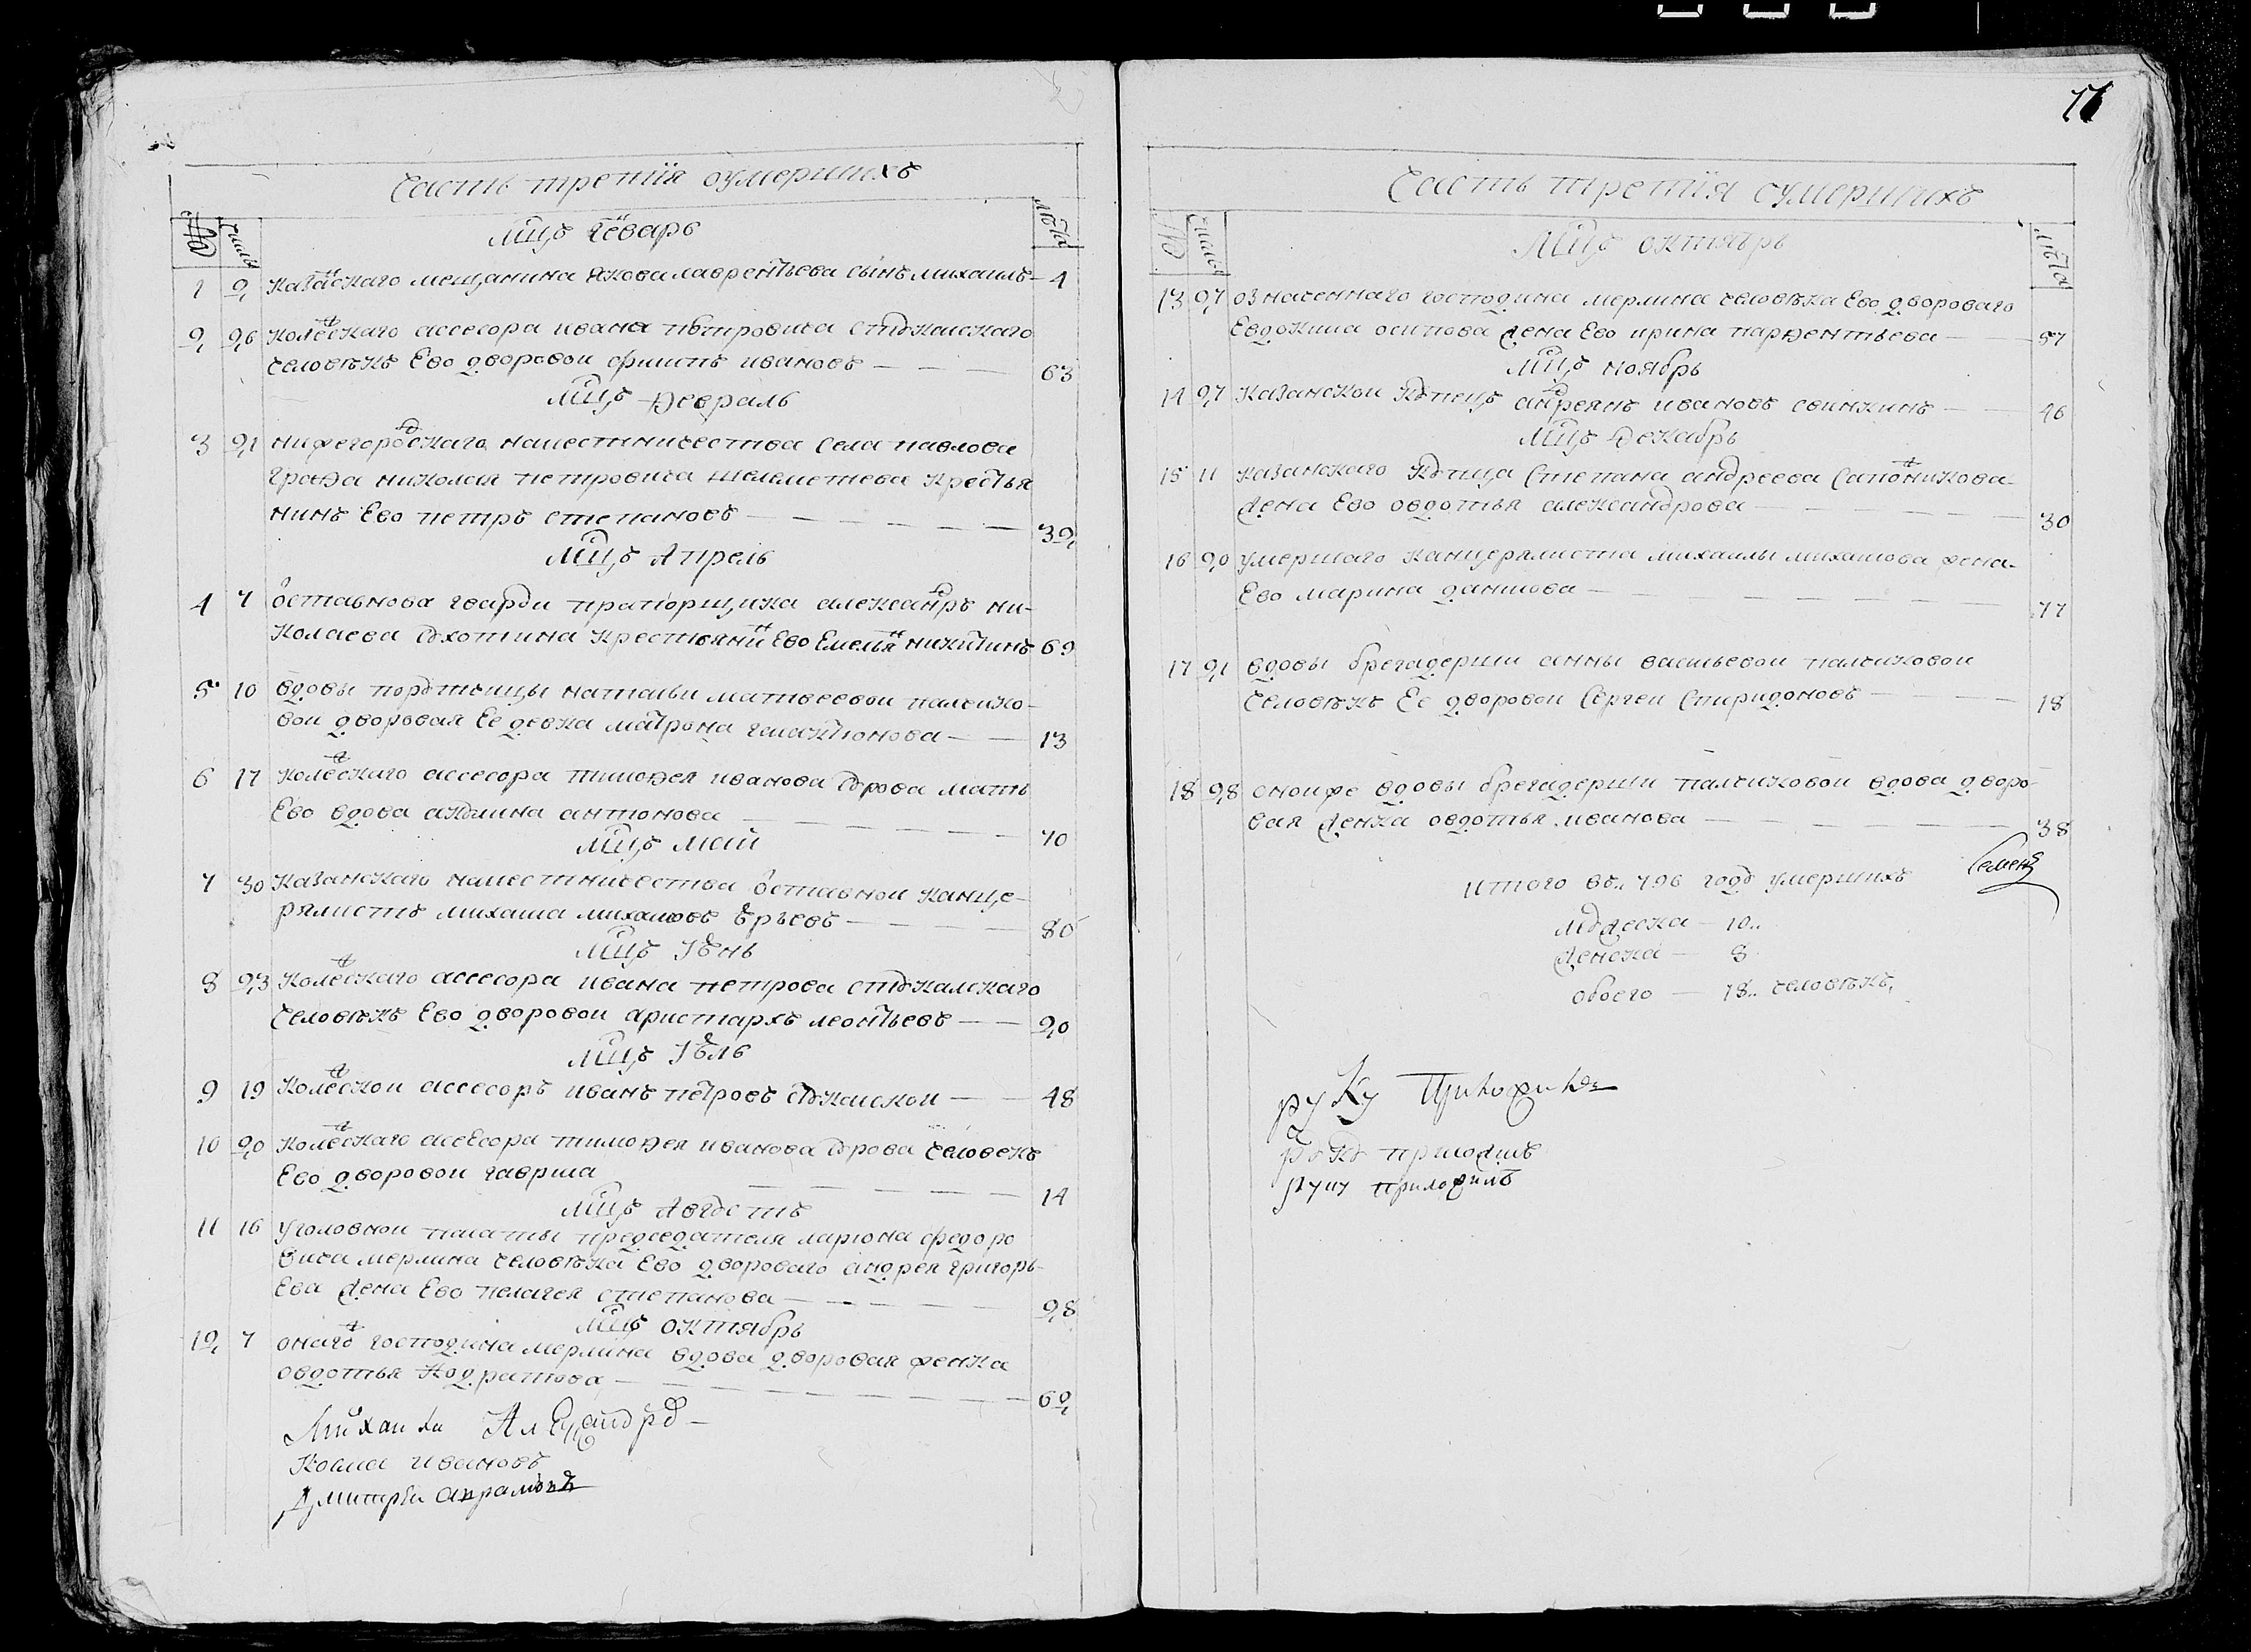 Часть третїя оумершихъ
№ числы лѣта
Мцъ Генварь
1 2 казанскаго мещанина якова лаврентьева сынъ михаилъ — 4
2 26 колежскаго ассесора ивана петровича стукалскаго
человѣкъ Ево дворовои филипъ ивановъ — — — 63
Мцъ Февраль
3 21 нижегородскаго наместничества села павлова
графа николая петровича шелеметева крестья
нинъ Ево петръ степановъ — — — — — 32
Мцъ Апрель
4 7 оставнова гварди прапорщика александръ ни-
колаева ухотина крестьянинъ Ево Емельянъ никитинъ 69
5 10 вдовы порутчицы натальи матвеевои палчико-
вои дворовая Ее девка матрона галактионова — — 13
6 17 колежскаго ассесора тимофея иванова мать
Ево вдова акулина антонова — — — — — 70
Мцъ Маи
7 30 Казанскаго наместничества оставнои канце-
рялистъ михаила михаиловъ юрьевъ — — — — 80
Мцъ Іюнь
8 23 Колежскаго ассесора ивана петрова стукалскаго
человѣкъ Ево дворовои аристархъ леонтьевъ — — 20
Мцъ Іюль
9 19 Колежскои ассесоръ иванъ петровъ стукалскои — — 48
10 20 Колежскаго асеЕсора тимофея иванова человекъ
Ево дворовои гаврила — — — — — 14
Мцъ Августъ
11 16 уголовнои палаты председателя лариона федоро
вича мерлина человѣка Ево двороваго андрея григорь-
Ева жена Ево пелагея степанова — — — — — 28
Мцъ октябрь
12 7 онагожъ господина мерлина вдова дворовая женка
овдотья кодратова — — — — — — — — 62
Михаила Александръ —
Козма ивановъ
Дмитреи
76
Часть третїя оумершихъ
№ числы лѣта
Мцъ октябрь
13 27 означеннаго господина мерлина человѣка Ево двороваго
Евдокима осипова жена Ево ирина парфентьева — — 57
Мцъ ноябрь
14 27 казанскои купецъ андреянъ ивановъ свинкинъ — — 46
Мцъ декабрь
15 11 казанскаго купца Степана андреева Сапожникова
жена Ево овдотья александрова — — — — 30
16 20 умершаго канцерялиста михаилы михаилова жена
Ево марина данилова — — — — — — — 77
17 21 вдовы брегадерши анны васильевои палчиковои
человѣкъ Ее дворовои Сергеи Спиридоновъ — — 18
18 28 оноиже вдовы брегадерши палчиковои вдова дворо-
вая женка овдотья иванова — — — — 38
Семенъ
итого въ 796 году умершихъ
мужеска — 10..
женска — 8
обоего — 18.. человѣкъ,
руку приложилъ
руку приложилъ
руку приложилъ